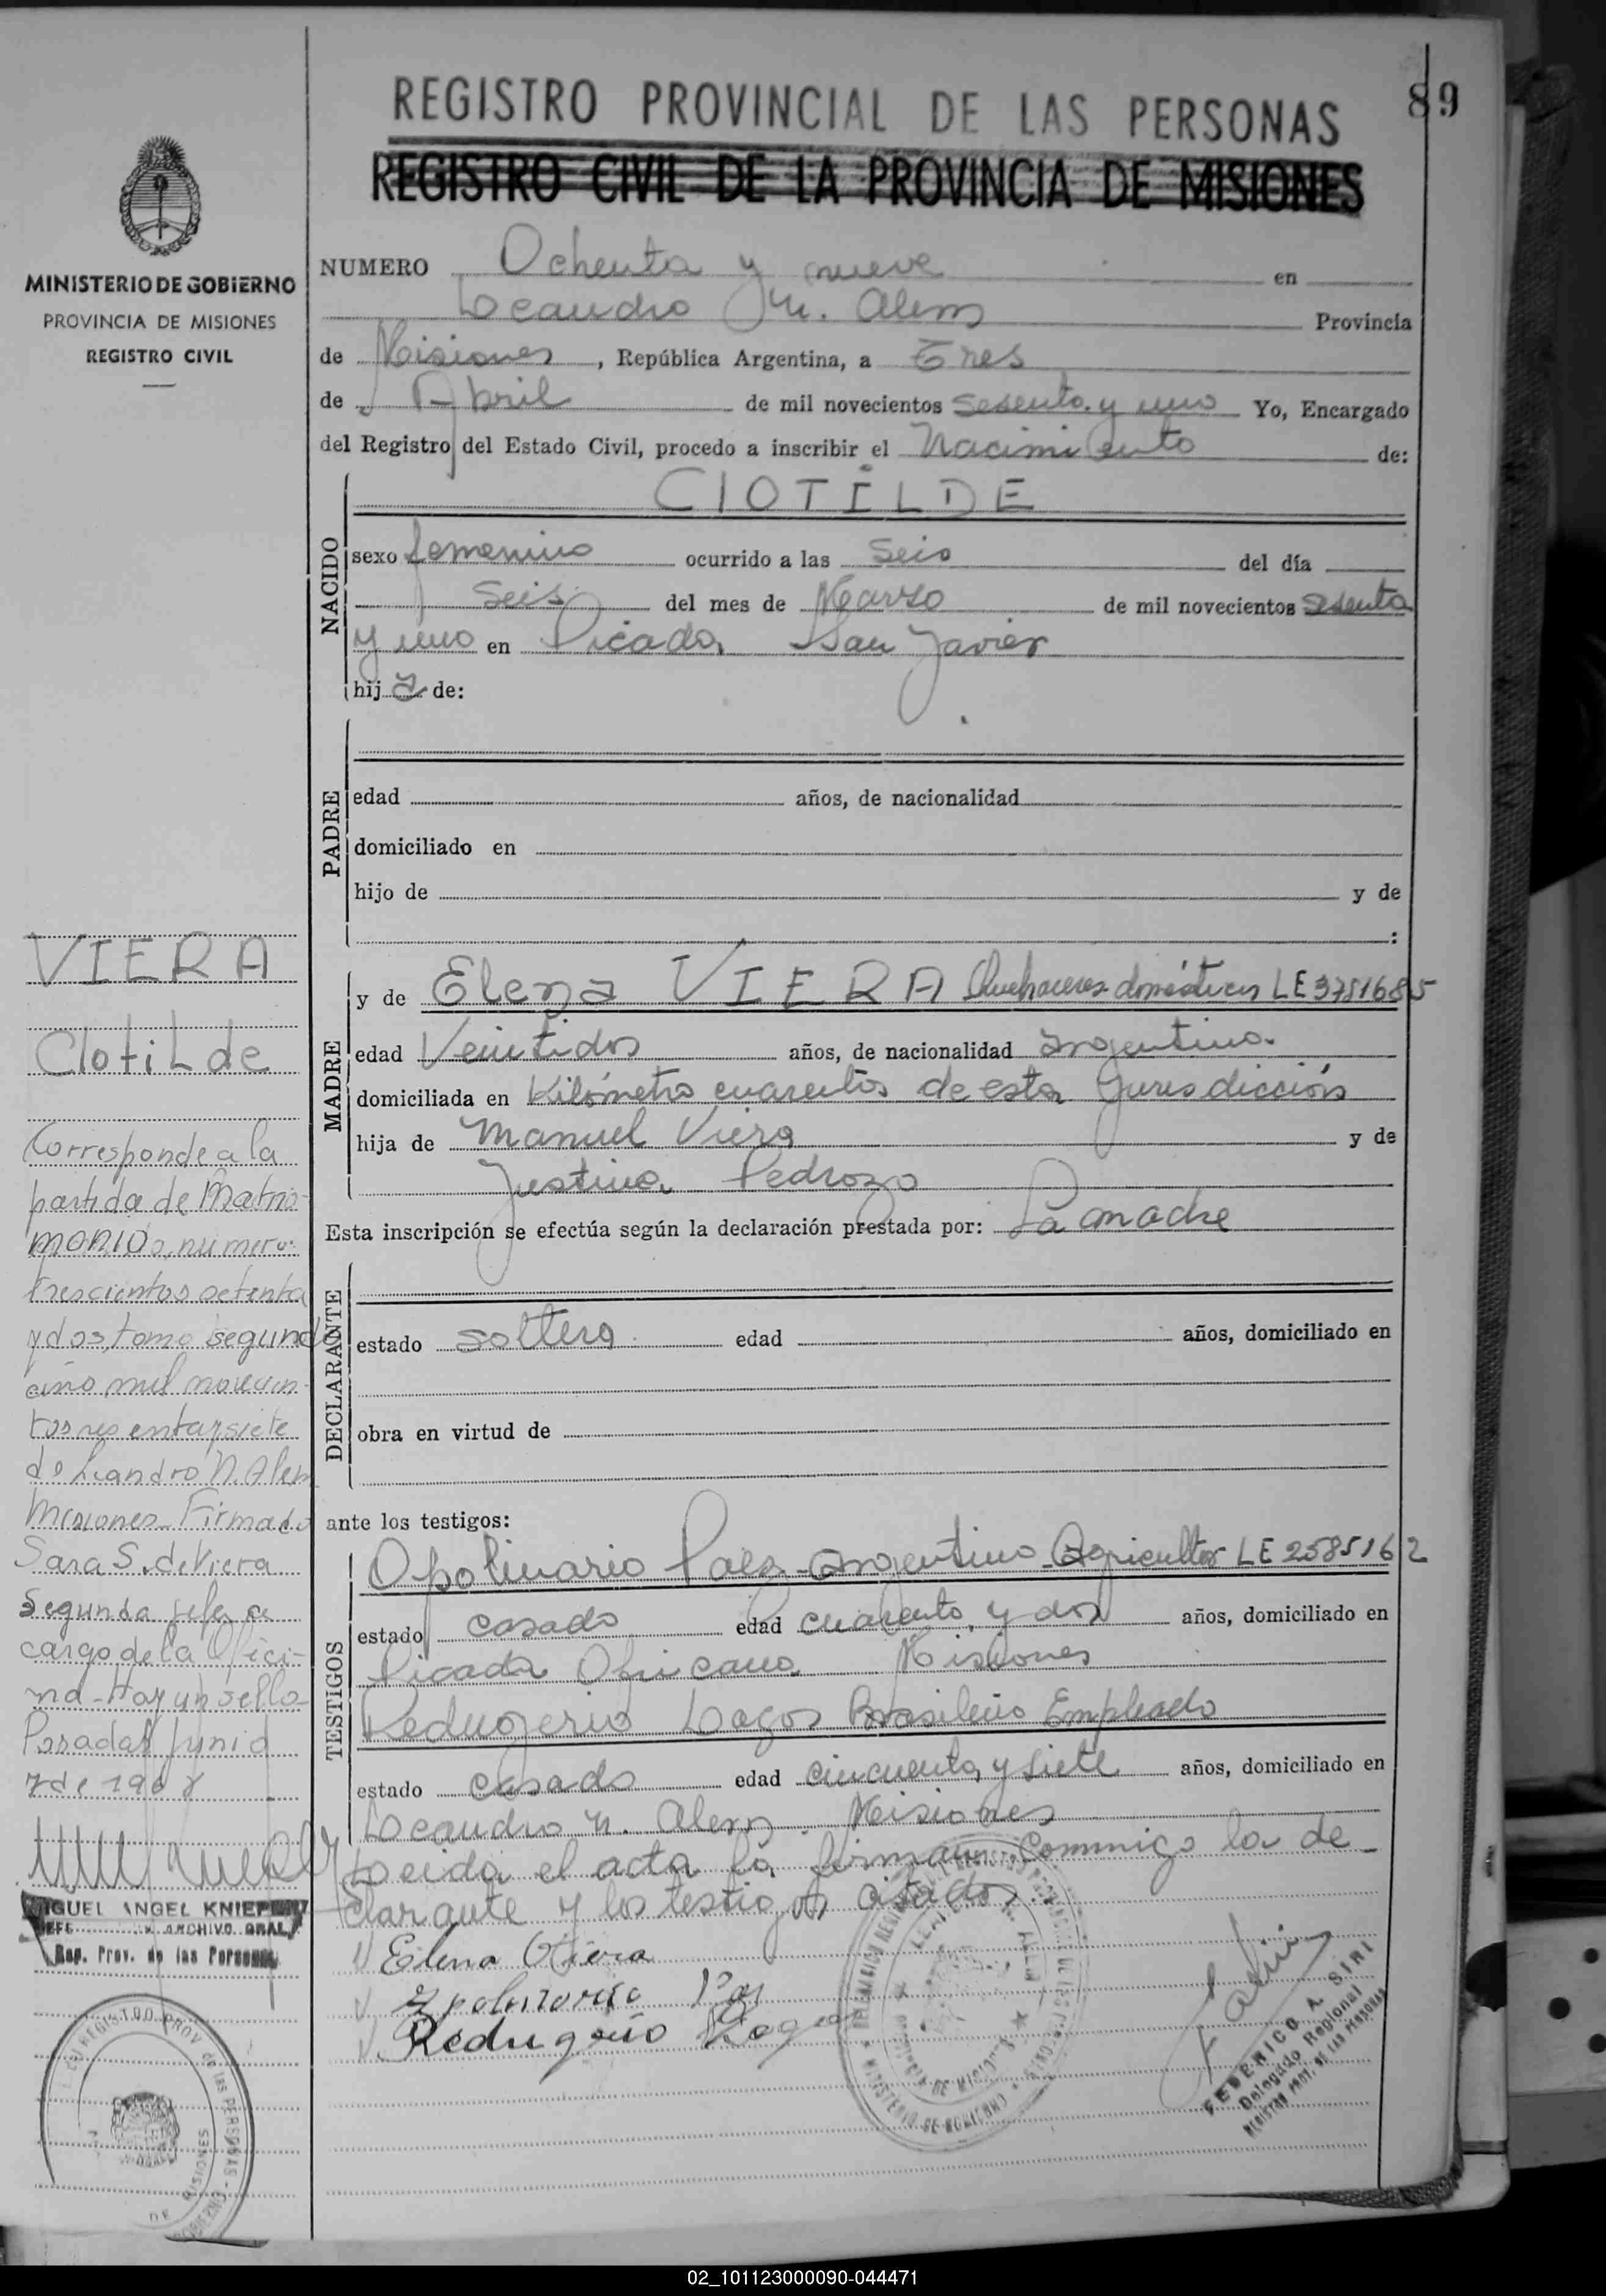 89
REGISTRO PROVINCIAL DE LAS PERSONAS
REGISTRO CIVIL DE LA PROVINCIA DE MISIONES
MINISTERIO DE GOBIERNO
PROVINCIA DE MISIONES
REGISTRO CIVIL
NUMERO Ochenta y nueve en
Leandro N. Alem Provincia
de Misiones, República Argentina, a Tres
de Abril de mil novecientos sesenta y uno Yo, Encargado
del Registro del Estado Civil, procedo a inscribir el Nacimiento de:
NACIDO
ClOTILDE
sexo femenino ocurrido a las seis del día
seis del mes de Marzo de mil novecientos sesenta
y uno en Picada San Javier
hija de:
PADRE
edad años, de nacionalidad
domiciliado en
hijo de y de
:
MADRE
y de Elena VIERA Quehaceres domésticos LE 3781685
edad Veintidos años, de nacionalidad argentina.
domiciliada en Kilómetro cuarenta de esta Jurisdicción
hija de Manuel Viera y de
Justina Pedrozo
Esta inscripción se efectúa según la declaración prestada por: La madre
DECLARANTE
estado soltera edad años, domiciliado en
obra en virtud de
ante los testigos:
TESTIGOS
Apolinario Paez argentino Agricultor LE 2585162
estado casado edad cuarenta y dos años, domiciliado en
Picada Africana Misiones
Redugerio Lagos Brasileño Empleado
estado casado edad cincuenta y siete años, domiciliado en
Leandro N. Alem. Misiones
Leida el acta la firman Conmigo la de-
clarante y los testigos citados.
Elena Viera
Redugerio Lagos
FEDERICO A. SIRI
Delegado Regional
REGISTRO PROV. DE LAS PERSONAS
VIERA
ClotiLde
Corresponde a la
partida de Matri-
monio, número
trescientos setenta
y dos, tomo segundo
año mil novecien-
tos sesenta y siete
de Leandro N. Alem
Misiones. Firmado
Sara S. de Viera
Segunda jefe a
cargo de la Ofici-
na - Hay un sello-
Posadas Junio
7 de 1968
MIGUEL ANGEL KNIEP
JEFE ARCHIVO GRAL.
Reg. Prov. de las Personas
REGISTRO PROV. de las PERSONAS
MISIONES
02_101123000090-044471